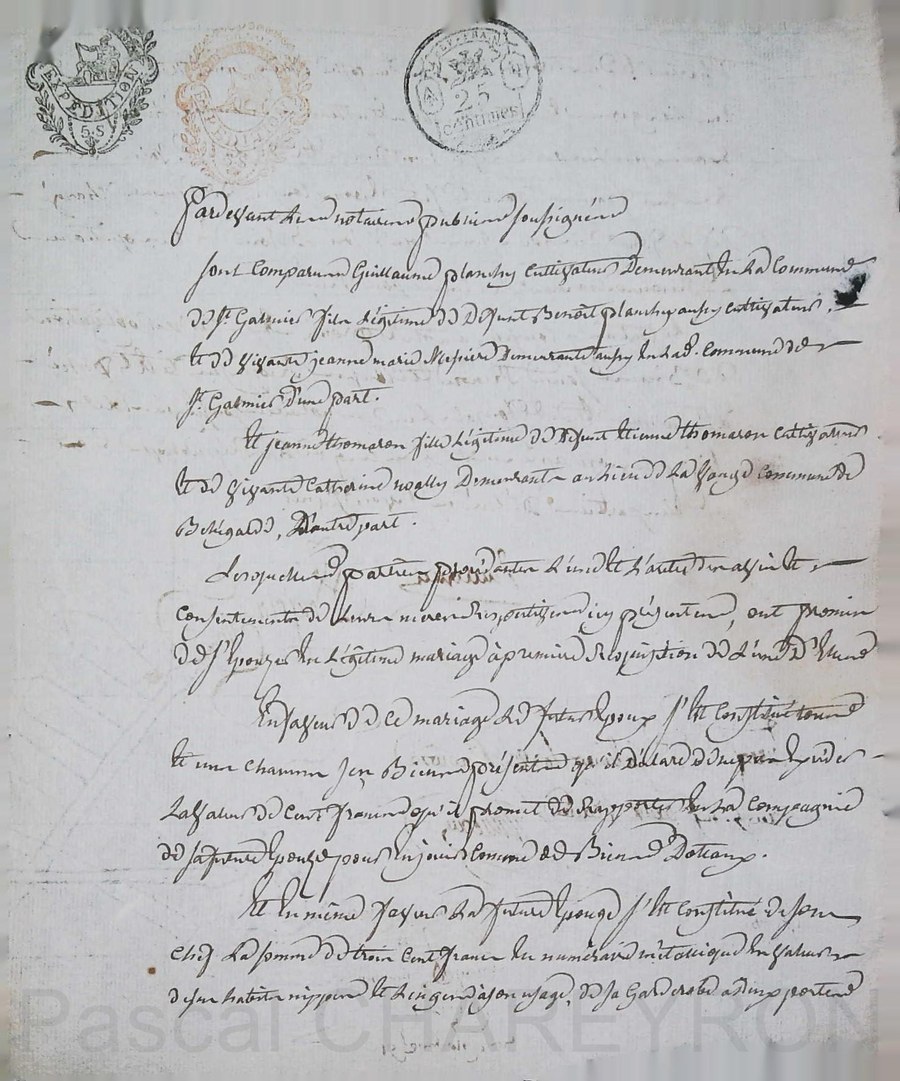 EXPEDITION
5.S
EXPEDITION
25
centimes
Pardevant Les notaires publics soussignés
sont Comparus Guillaume planchy Cultivateur Demeurant En La Commune
de St. Galmier fils Légitime de Défunt Benoît planchy aussy Cultivateur,
Et de vivante jeanne marie Demeurante aussy En Lad. Commune de
St. Galmier d'une part.
Et jeanne thomaron fille Légitime de Défunt Etienne thomaron Cultivateur
Et de vivante Catherine Demeurante au Lieu de La Commune de
Bellegarde, D'autre part.
Lesquelles parties procédantes L'une Et L'autre de l'avis Et
Consentement de Leurs meres Respectives icy présentes, ont promis
de s'Epouzer En Légitime mariage à premiere Requisition de L'une D'Elles
En faveur de Ce mariage Le futur Epoux s'Est Constitué tous
Et uns Chacuns ses Biens présents qu'il Déclare Exceder
La valeur de Cent francs qu'il promet de Rapporter En La Compagnie
de sa future Epouze pour En jouir Comme de Biens Dotaux.
Et En même faveur La future Epouze s'Est Constitué de son
Chef La somme de trois Cent francs En numéraire métallique En valeur
de ses habits nippes Et Linges à son usage, de sa Garderobe
Pascal CHAREYRON